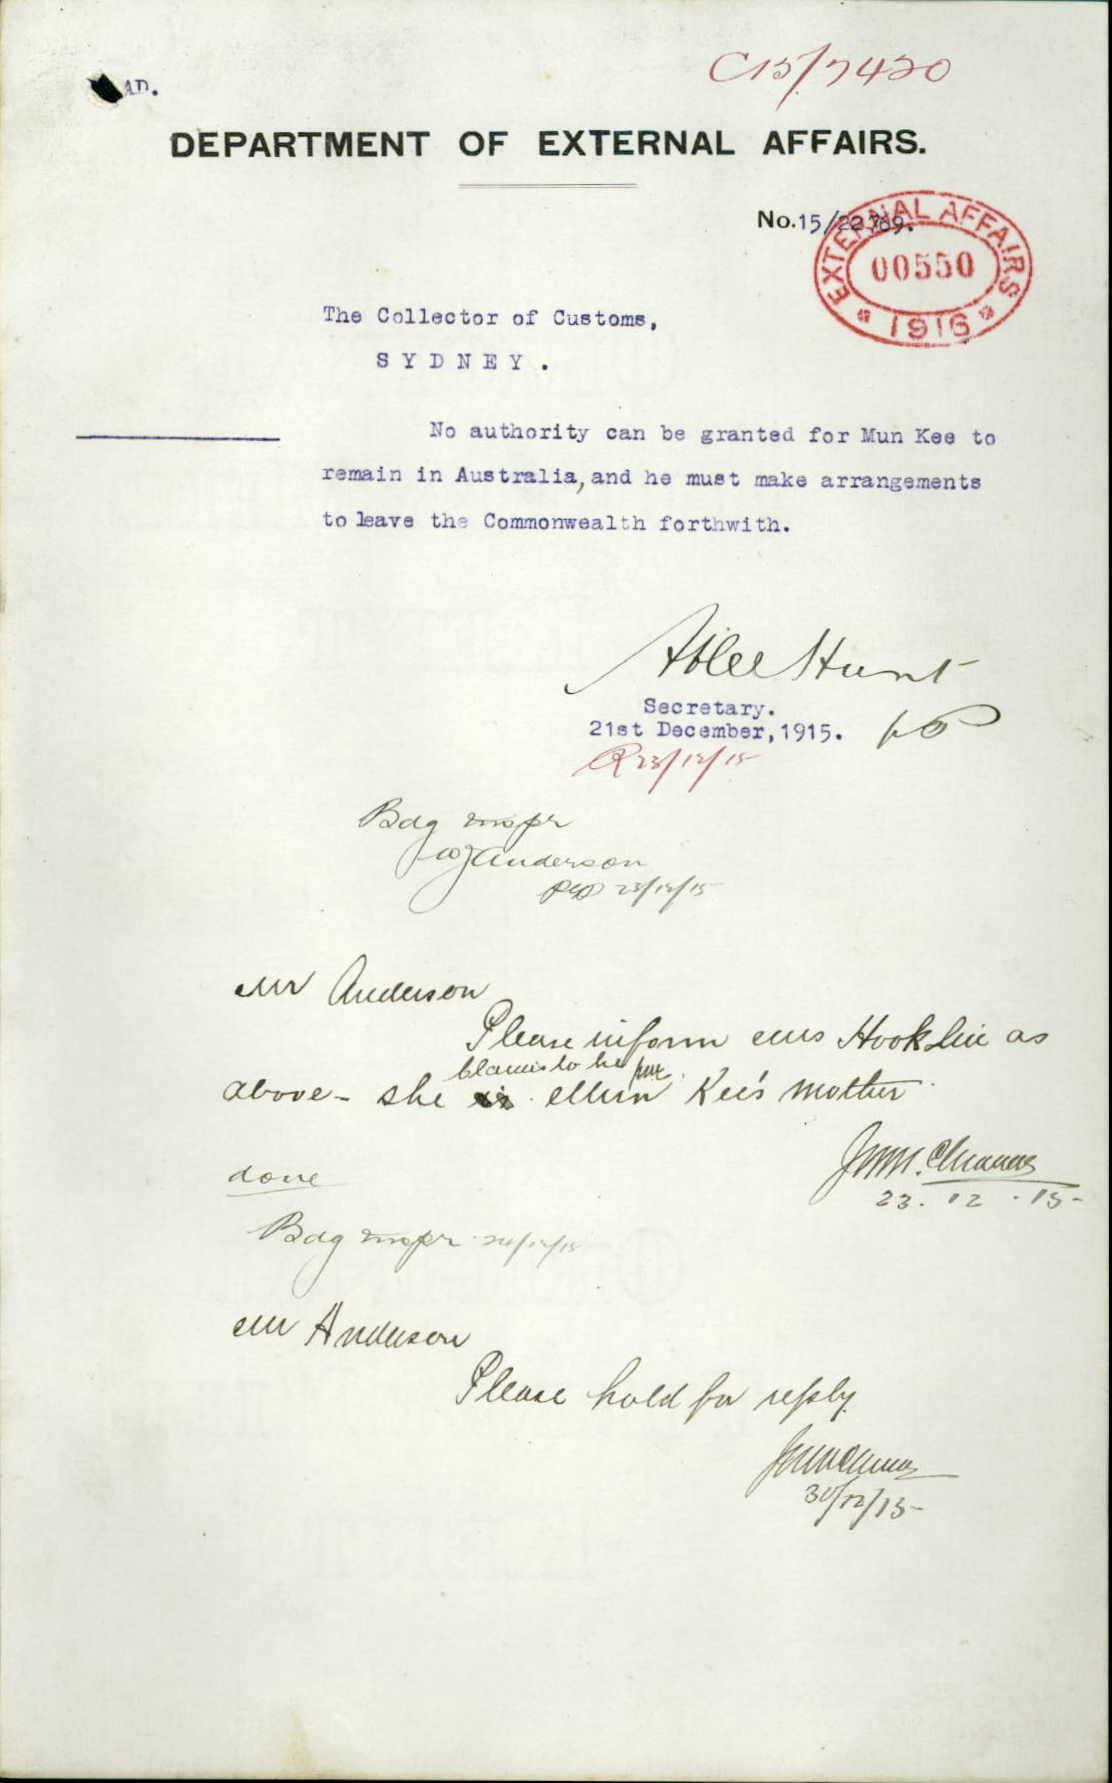 C15/7420
AD.
DEPARTMENT OF EXTERNAL AFFAIRS.
No. 15/22769.
EXTERNAL AFFAIRS
00550
1916
The Collector of Customs,
SYDNEY.
No authority can be granted for Mun Kee to
remain in Australia, and he must make arrangements
to leave the Commonwealth forthwith.
Atlee Hunt
Secretary.
21st December, 1915.
23/12/15
Bdg Inspr
WJ Anderson
23/12/15
Mr Anderson
Please inform Mrs Hook Lin as
claims to be
above - she is Mun Kee's mother
23.12.15
done
Bdg Inspr 24/12/15
Mr Anderson
Please hold for reply
30/12/15